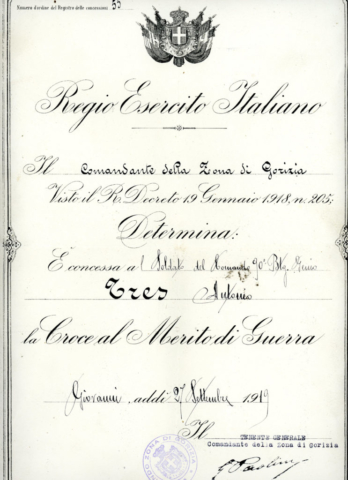 Numero d'ordine del Registro delle concessioni
Regio Esercito Italiano
Il Comandante della Zona di Gorizia
Visto il R. Decreto 19 Gennaio 1918, n. 205;
Determina:
È concessa al Soldato del Comando 90° Btg. Genio
Tres Antonio
la Croce al Merito di Guerra
Giovanni, addì 27 Settembre 1919
Il TENENTE GENERALE
Comandante della Zona di Gorizia